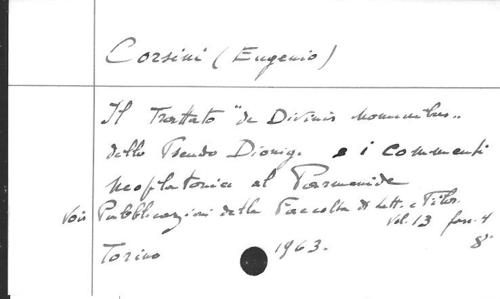 Corsini (Eugenio)
Il Trattato "de Divinis nominibus"
dello Pseudo Dionig. e i commenti
neoplatonici al Parmenide
Voir Pubblicazioni della Facoltà di Lett. e Filos.
Vol. 13 fasc. 4
Torino 1963. 8°